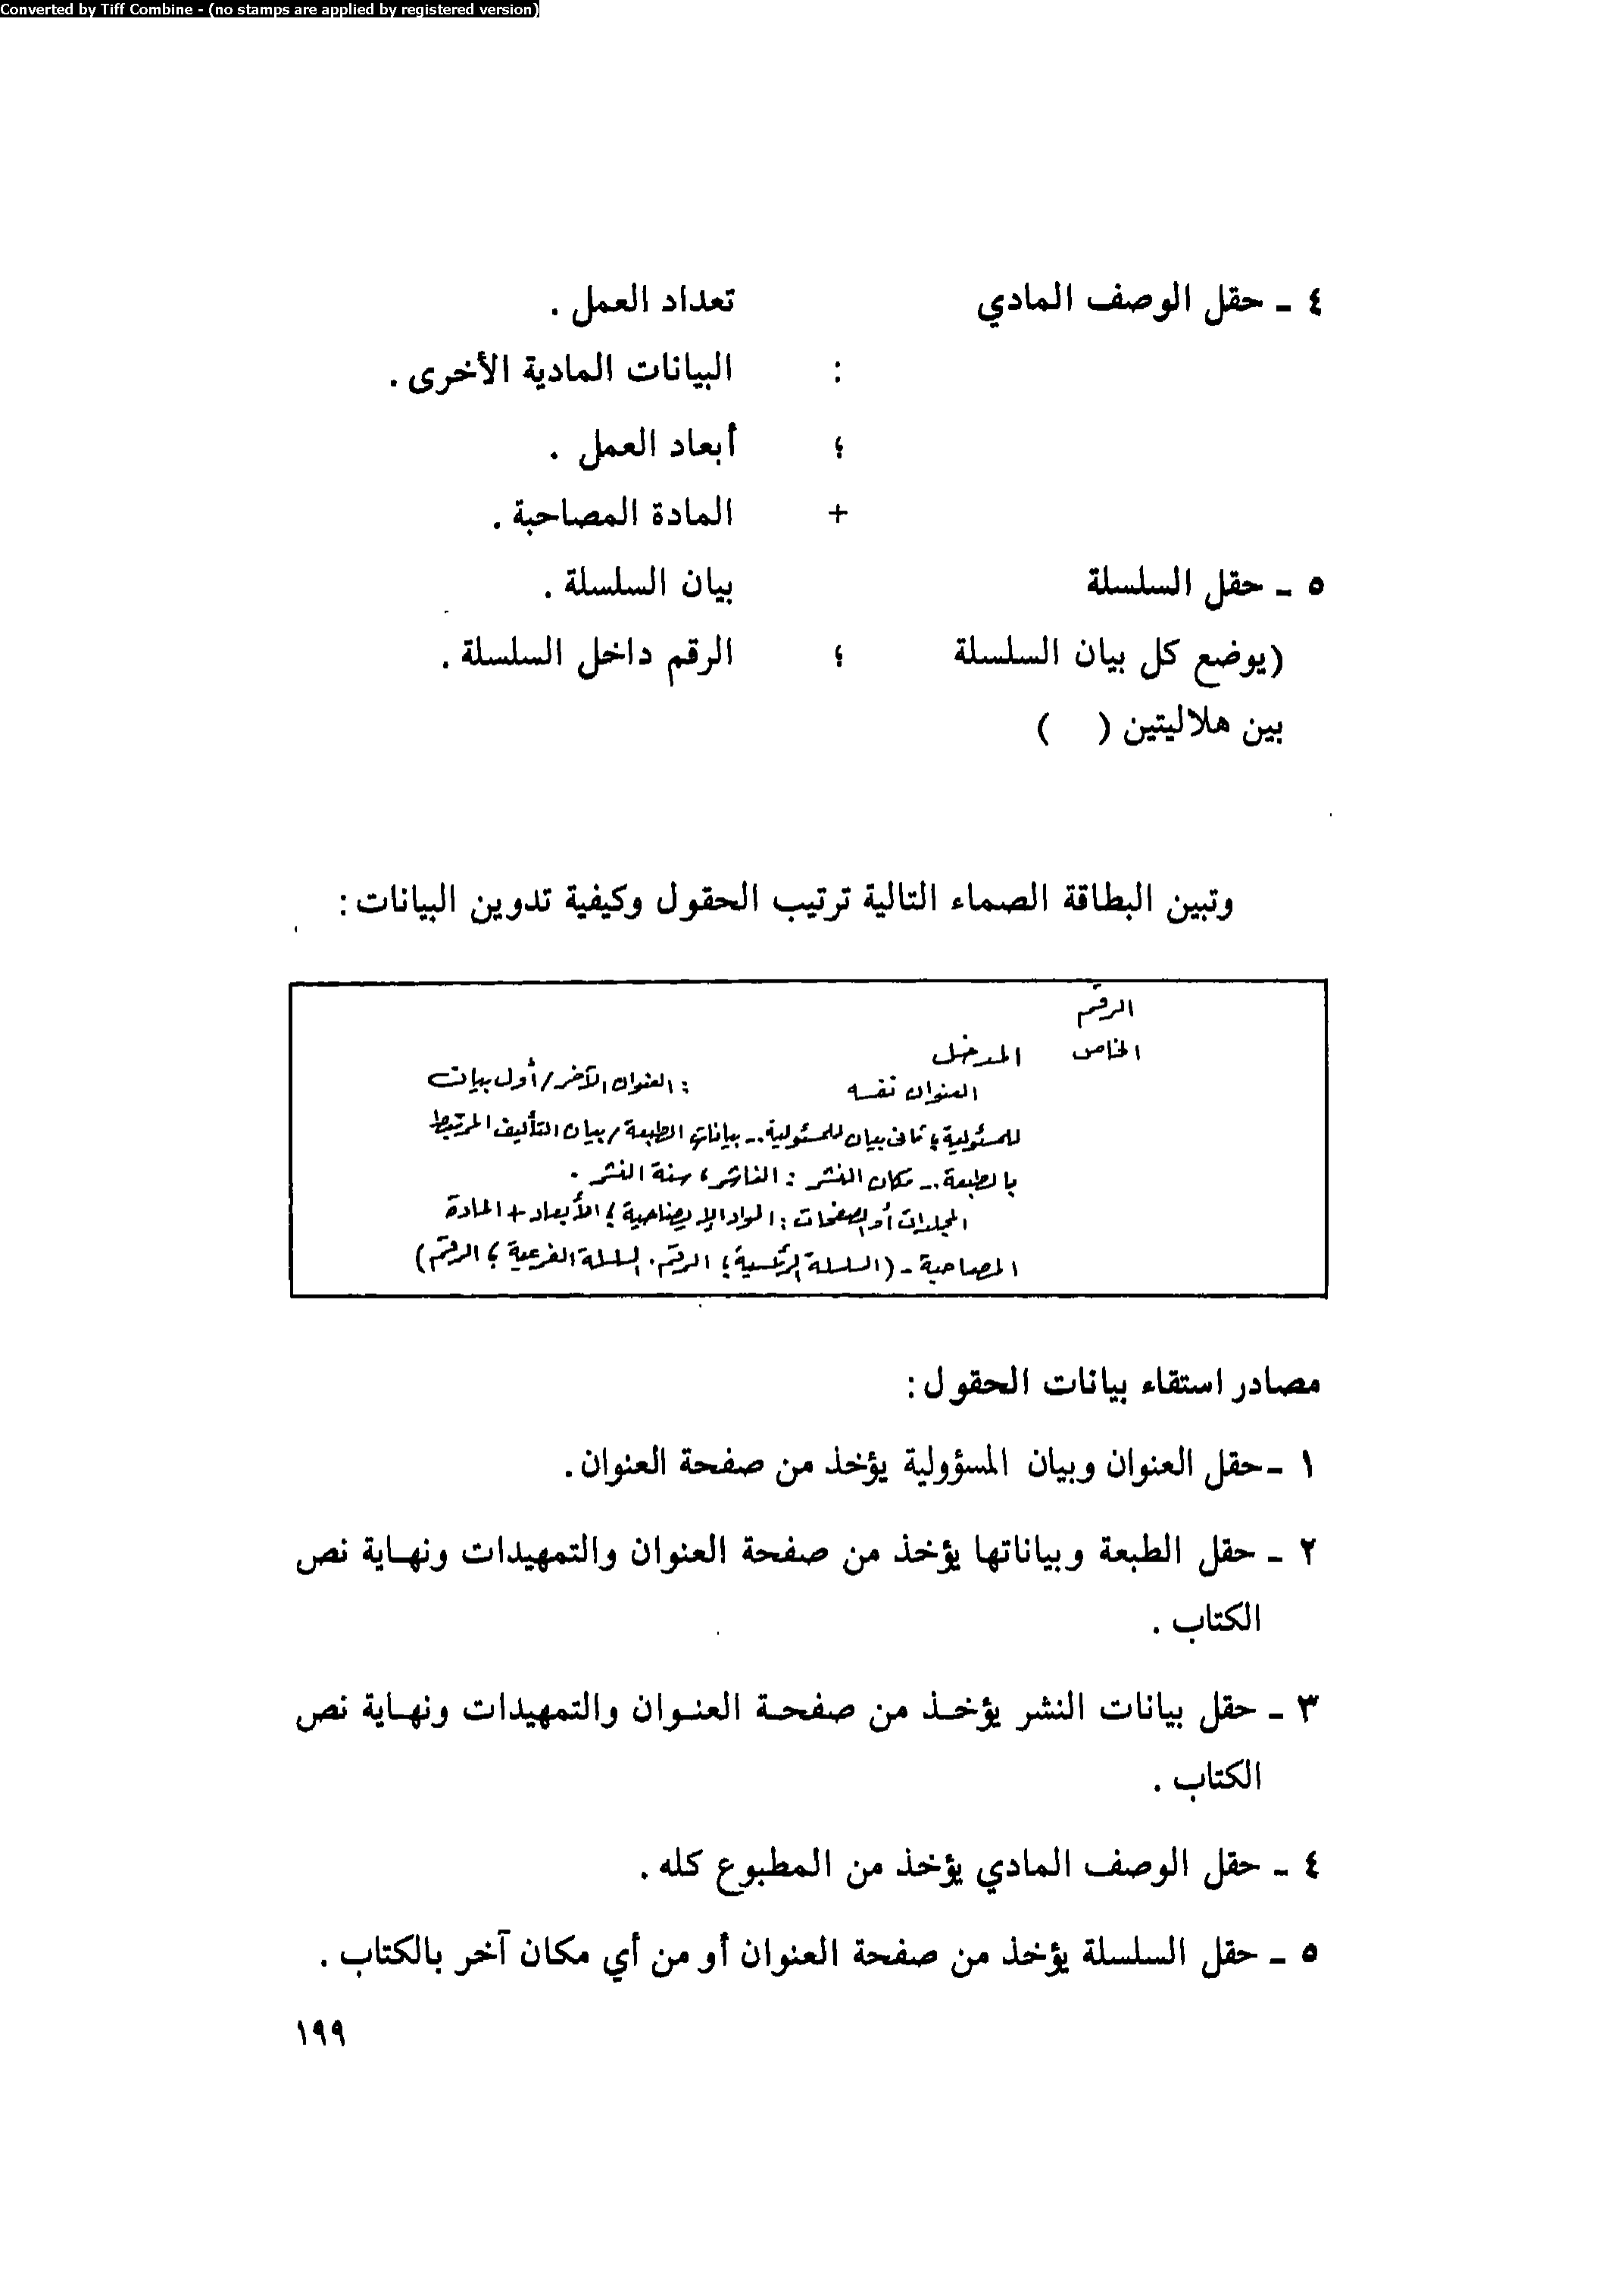 Converted by Tiff Combine - (no stamps are applied by registered version)
٤ ـ حقل الوصف المادي تعداد العمل .
: البيانات المادية الأخرى .
؛ أبعاد العمل .
+ المادة المصاحبة .
٥ ـ حقل السلسلة بيان السلسلة .
(يوضع كل بيان السلسلة ؛ الرقم داخل السلسلة .
بين هلاليتين ( )
وتبين البطاقة الصماء التالية ترتيب الحقول وكيفية تدوين البيانات :
الرقم
الخاص المدخل
العنوان نفسه : العنوان الآخر / أول بيان
للمسئولية ؛ ثاني بيان للمسئولية .ـ بيانات الطبعة / بيان التأليف المرتبط
بالطبعة .ـ مكان النشر : الناشر ، سنة النشر .
المجلدات أو الصفحات : المواد الإيضاحية ؛ الأبعاد + المادة
المصاحبة ـ (السلسلة الرئيسية ؛ الرقم . السلسلة الفرعية ؛ الرقم)
مصادر استقاء بيانات الحقول :
١ ـ حقل العنوان وبيان المسؤولية يؤخذ من صفحة العنوان .
٢ ـ حقل الطبعة وبياناتها يؤخذ من صفحة العنوان والتمهيدات ونهاية نص
الكتاب .
٣ ـ حقل بيانات النشر يؤخذ من صفحة العنوان والتمهيدات ونهاية نص
الكتاب .
٤ ـ حقل الوصف المادي يؤخذ من المطبوع كله .
٥ ـ حقل السلسلة يؤخذ من صفحة العنوان أو من أي مكان آخر بالكتاب .
١٩٩